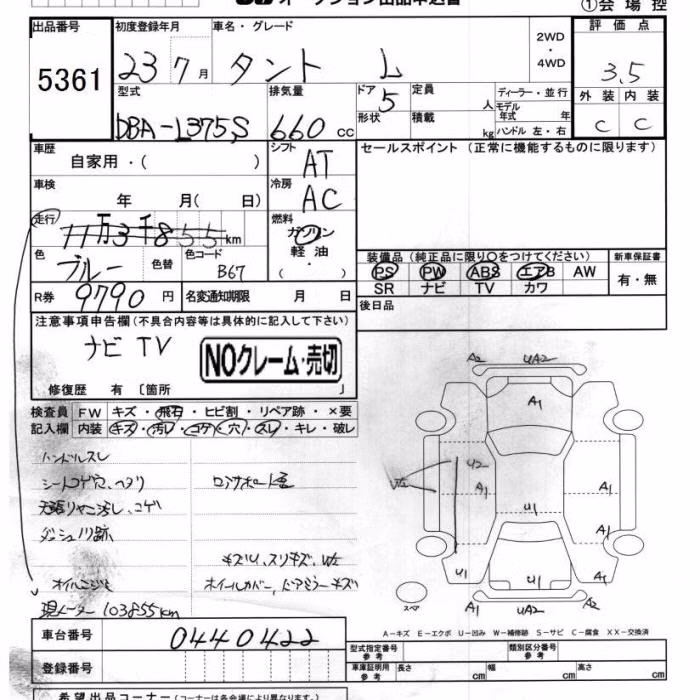 オークション出品申込書
①会場控
出品番号 初度登録年月 車名・グレード 2WD・4WD 評価点
5361 23 7月 タント L 3.5
型式 排気量 ドア 定員 ディーラー・並行 外装 内装
5 人 モデル年式 年
DBA-L375S 660cc 形状 積載 kg ハンドル 左・右 C C
車歴 シフト セールスポイント (正常に機能するものに限ります)
自家用・( ) AT
車検 冷房
年 月( 日) AC
走行 燃料
11万3千855km ガソリン
色 色替 色コード 軽油 装備品 (純正品に限り○をつけてください) 新車保証書
ブルー B67 ・( ) PS PW ABS エアB AW 有・無
R券 9790円 名変通知期限 月 日 SR ナビ TV カワ
後日品
注意事項申告欄(不具合内容等は具体的に記入して下さい)
ナビ TV NOクレーム・売切
修復歴 有 〔箇所 〕
検査員 FW キズ・飛石・ヒビ割・リペア跡・×要
記入欄 内装 キズ・汚レ・コゲ・穴・スレ・キレ・破レ
ハンドルスレ
シートコゲ穴、ヘタリ ロアサポート歪
天張りヤニ汚し、コゲ
ダッシュ
キズU、スリキズ、W2
オイルニジミ ホイールカバー、ドアミラーキズ
現メーター 103855km
A2 UA2 A2
A1
W2 U2
A1 U1 A1
A1
U1 U1 A1
スペア A1 UA2 A1
A－キズ E－エクボ U－凹み W－補修跡 S－サビ C－腐食 XX－交換済
車台番号 0440422 型式指定番号 参考 類別区分番号 参考
登録番号 車庫証明用 参考 長さ cm 幅 cm 高さ cm
希望出品コーナー (コーナーは各会場により異なります。)